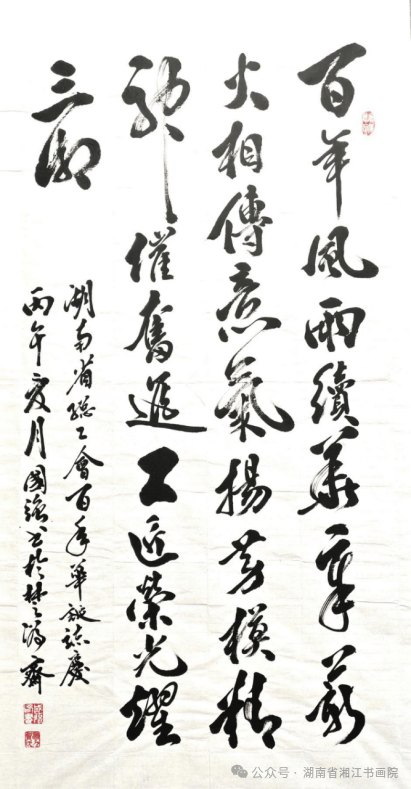 百年風雨續華章薪
火相傳意氣揚勞模精
神催奮進工匠榮光耀
三湘
湖南省總工會百年華誕誌慶
丙午夏月國強書於楚之源齋
公众号 · 湖南省湘江书画院